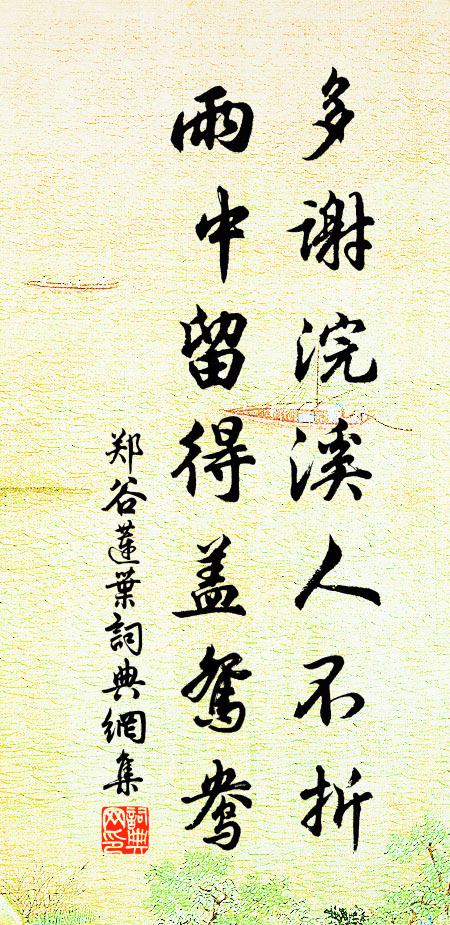 多谢浣溪人不折
雨中留得盖鸳鸯
郑谷莲葉詞典網集
詞典網印